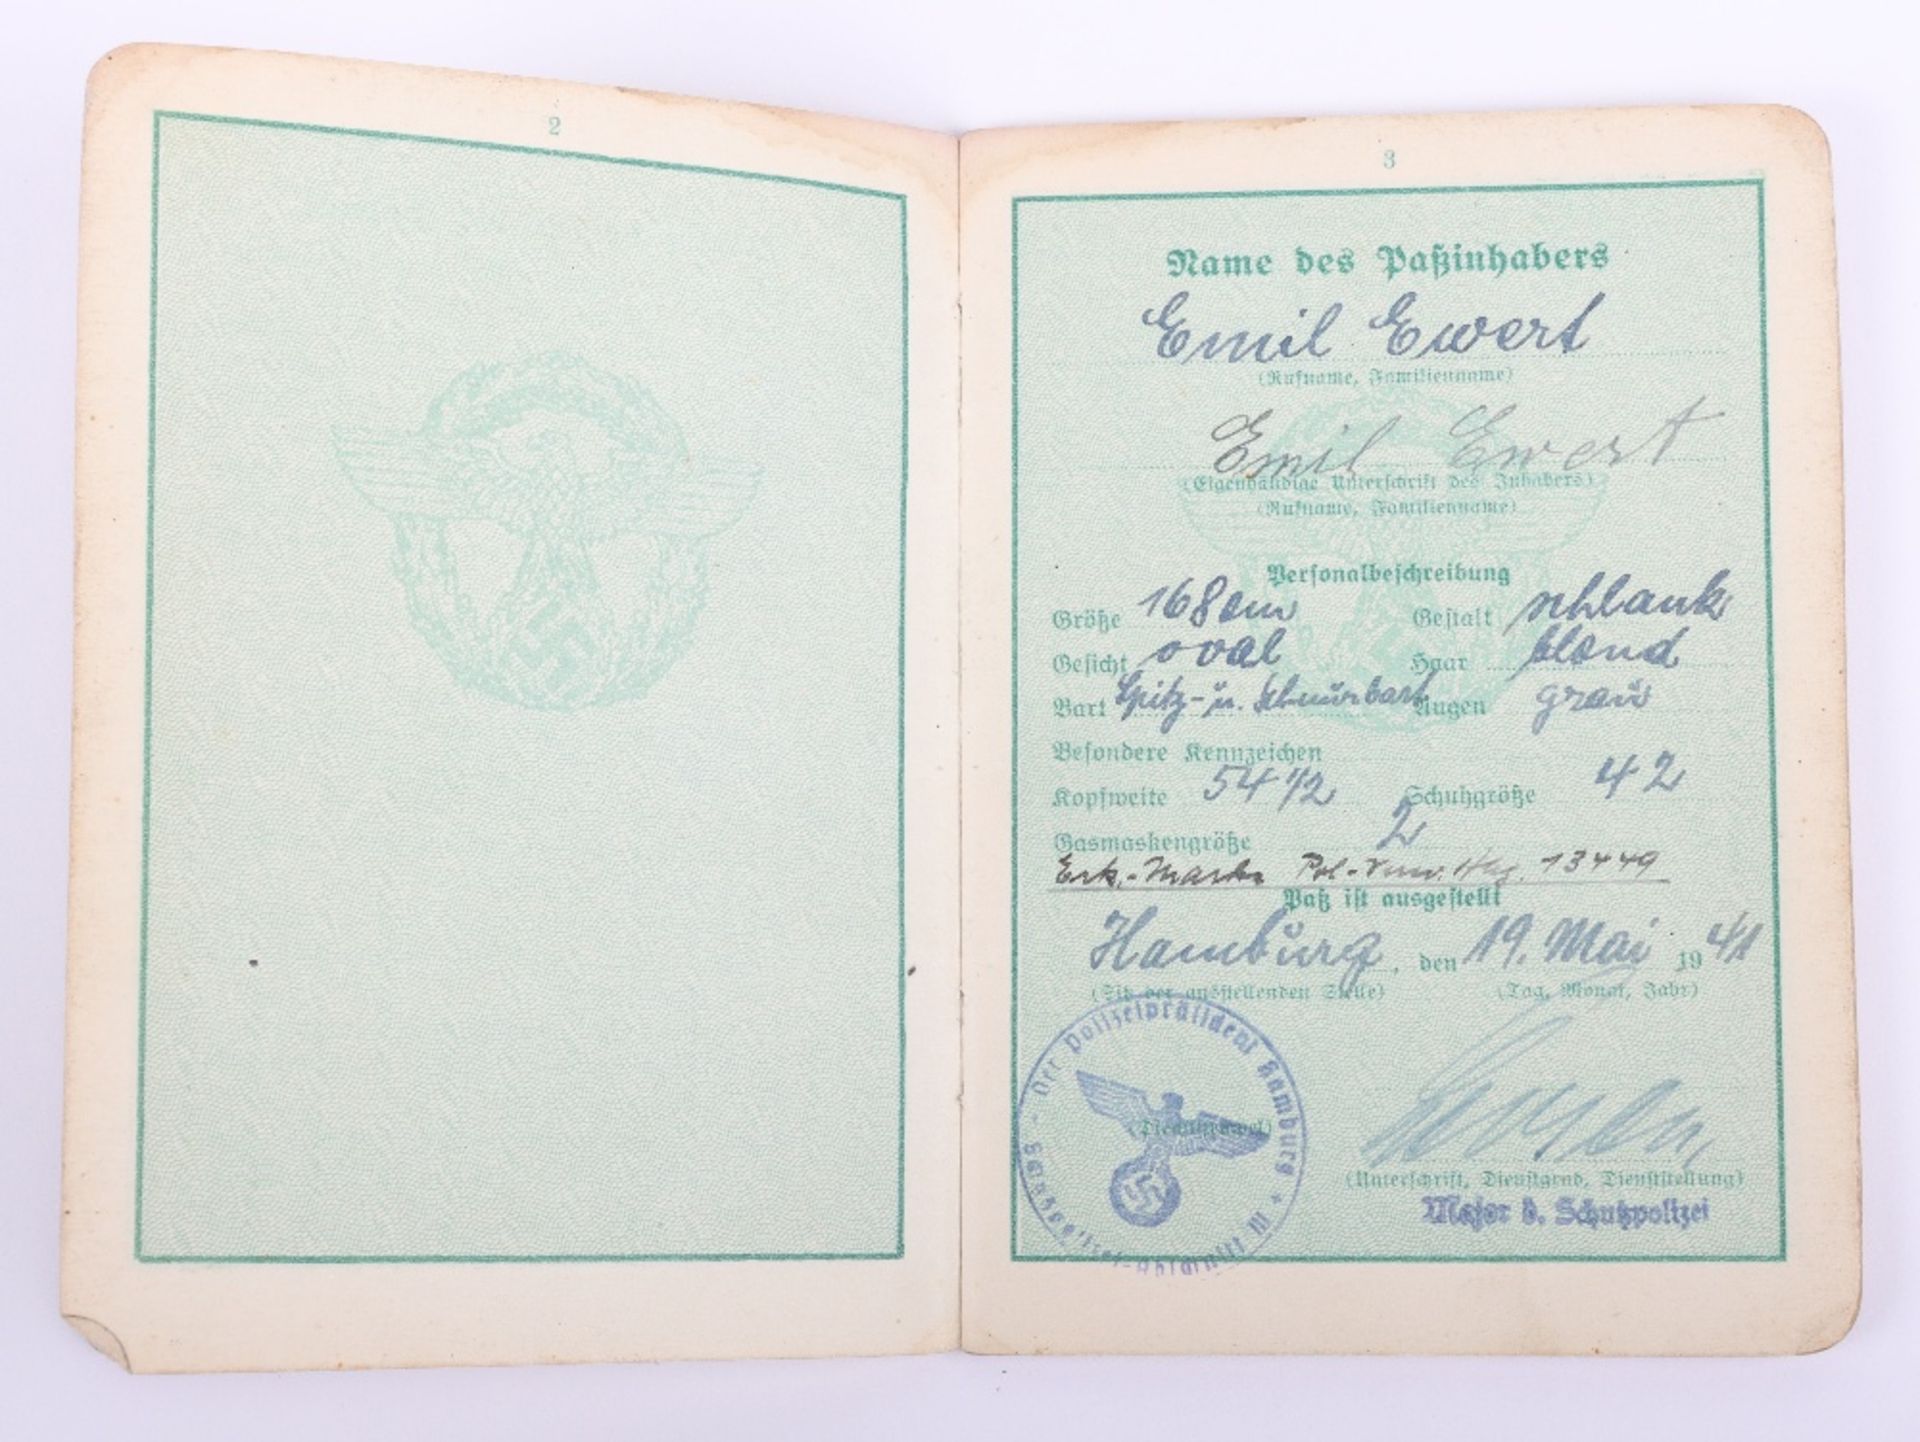 2
3
Name des Paßinhabers
Emil Ewert
(Rufname, Familienname)
Emil Ewert
(Eigenhändige Unterschrift des Inhabers)
(Rufname, Familienname)
Personalbeschreibung
Größe 168 cm Gestalt schlank
Gesicht oval Haar blond
Bart Spitz- u. Schnurbart Augen grau
Besondere Kennzeichen
Kopfweite 54 1/2 Schuhgröße 42
Gasmaskengröße 2
Erk.-Marke Pol.-Verw. Hbg. 13449
Paß ist ausgestellt
Hamburg, den 19. Mai 1941
(Sitz der ausstellenden Stelle) (Tag, Monat, Jahr)
Der Polizeipräsident Hamburg
(Dienststempel)
(Unterschrift, Dienstgrad, Dienststellung)
Major d. Schutzpolizei